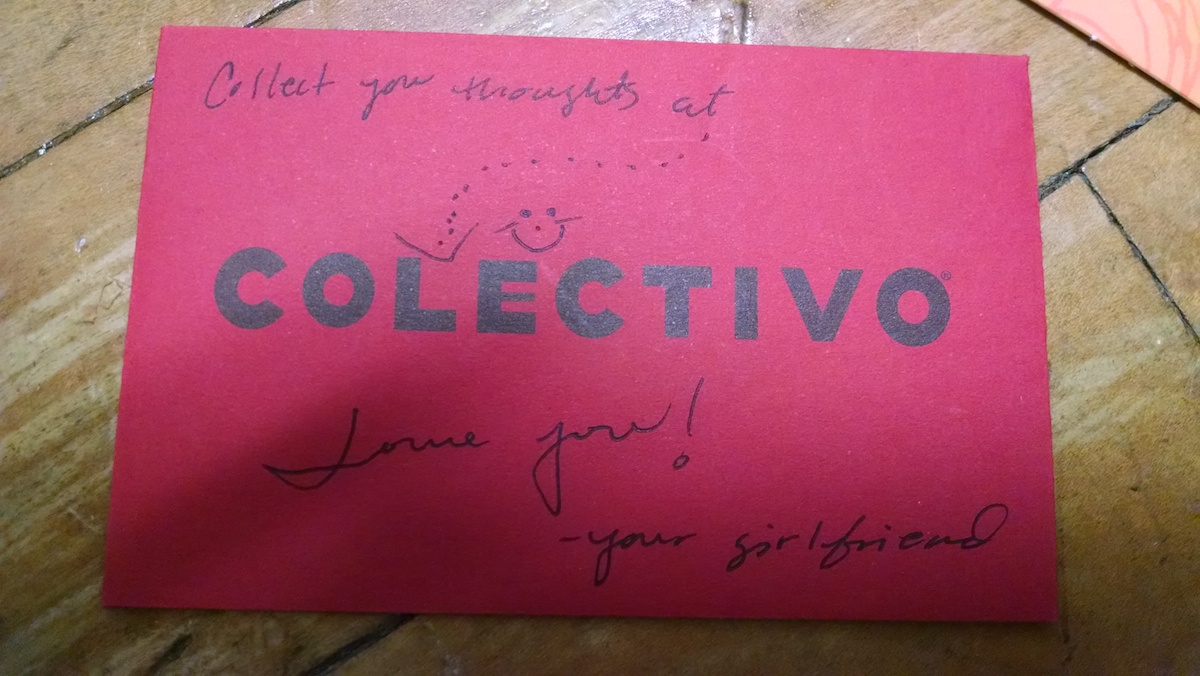 Collect you thoughts at
COLECTIVO®
Love you!
-your girlfriend